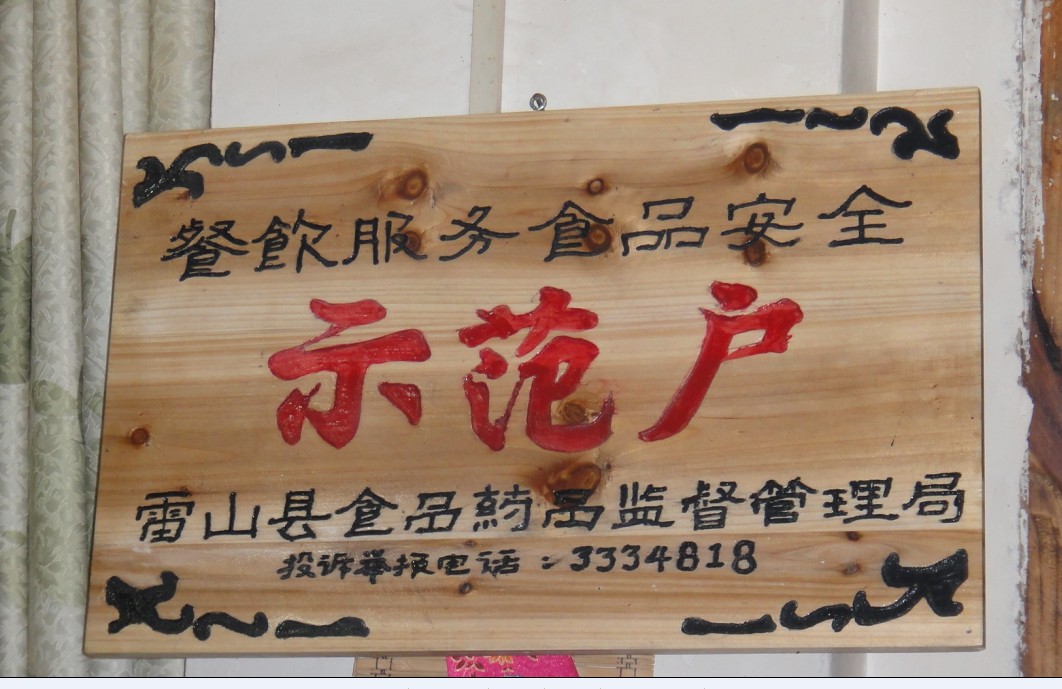 餐飲服务食品安全
示范户
雷山县食品药品监督管理局
投诉举报电话：3334818